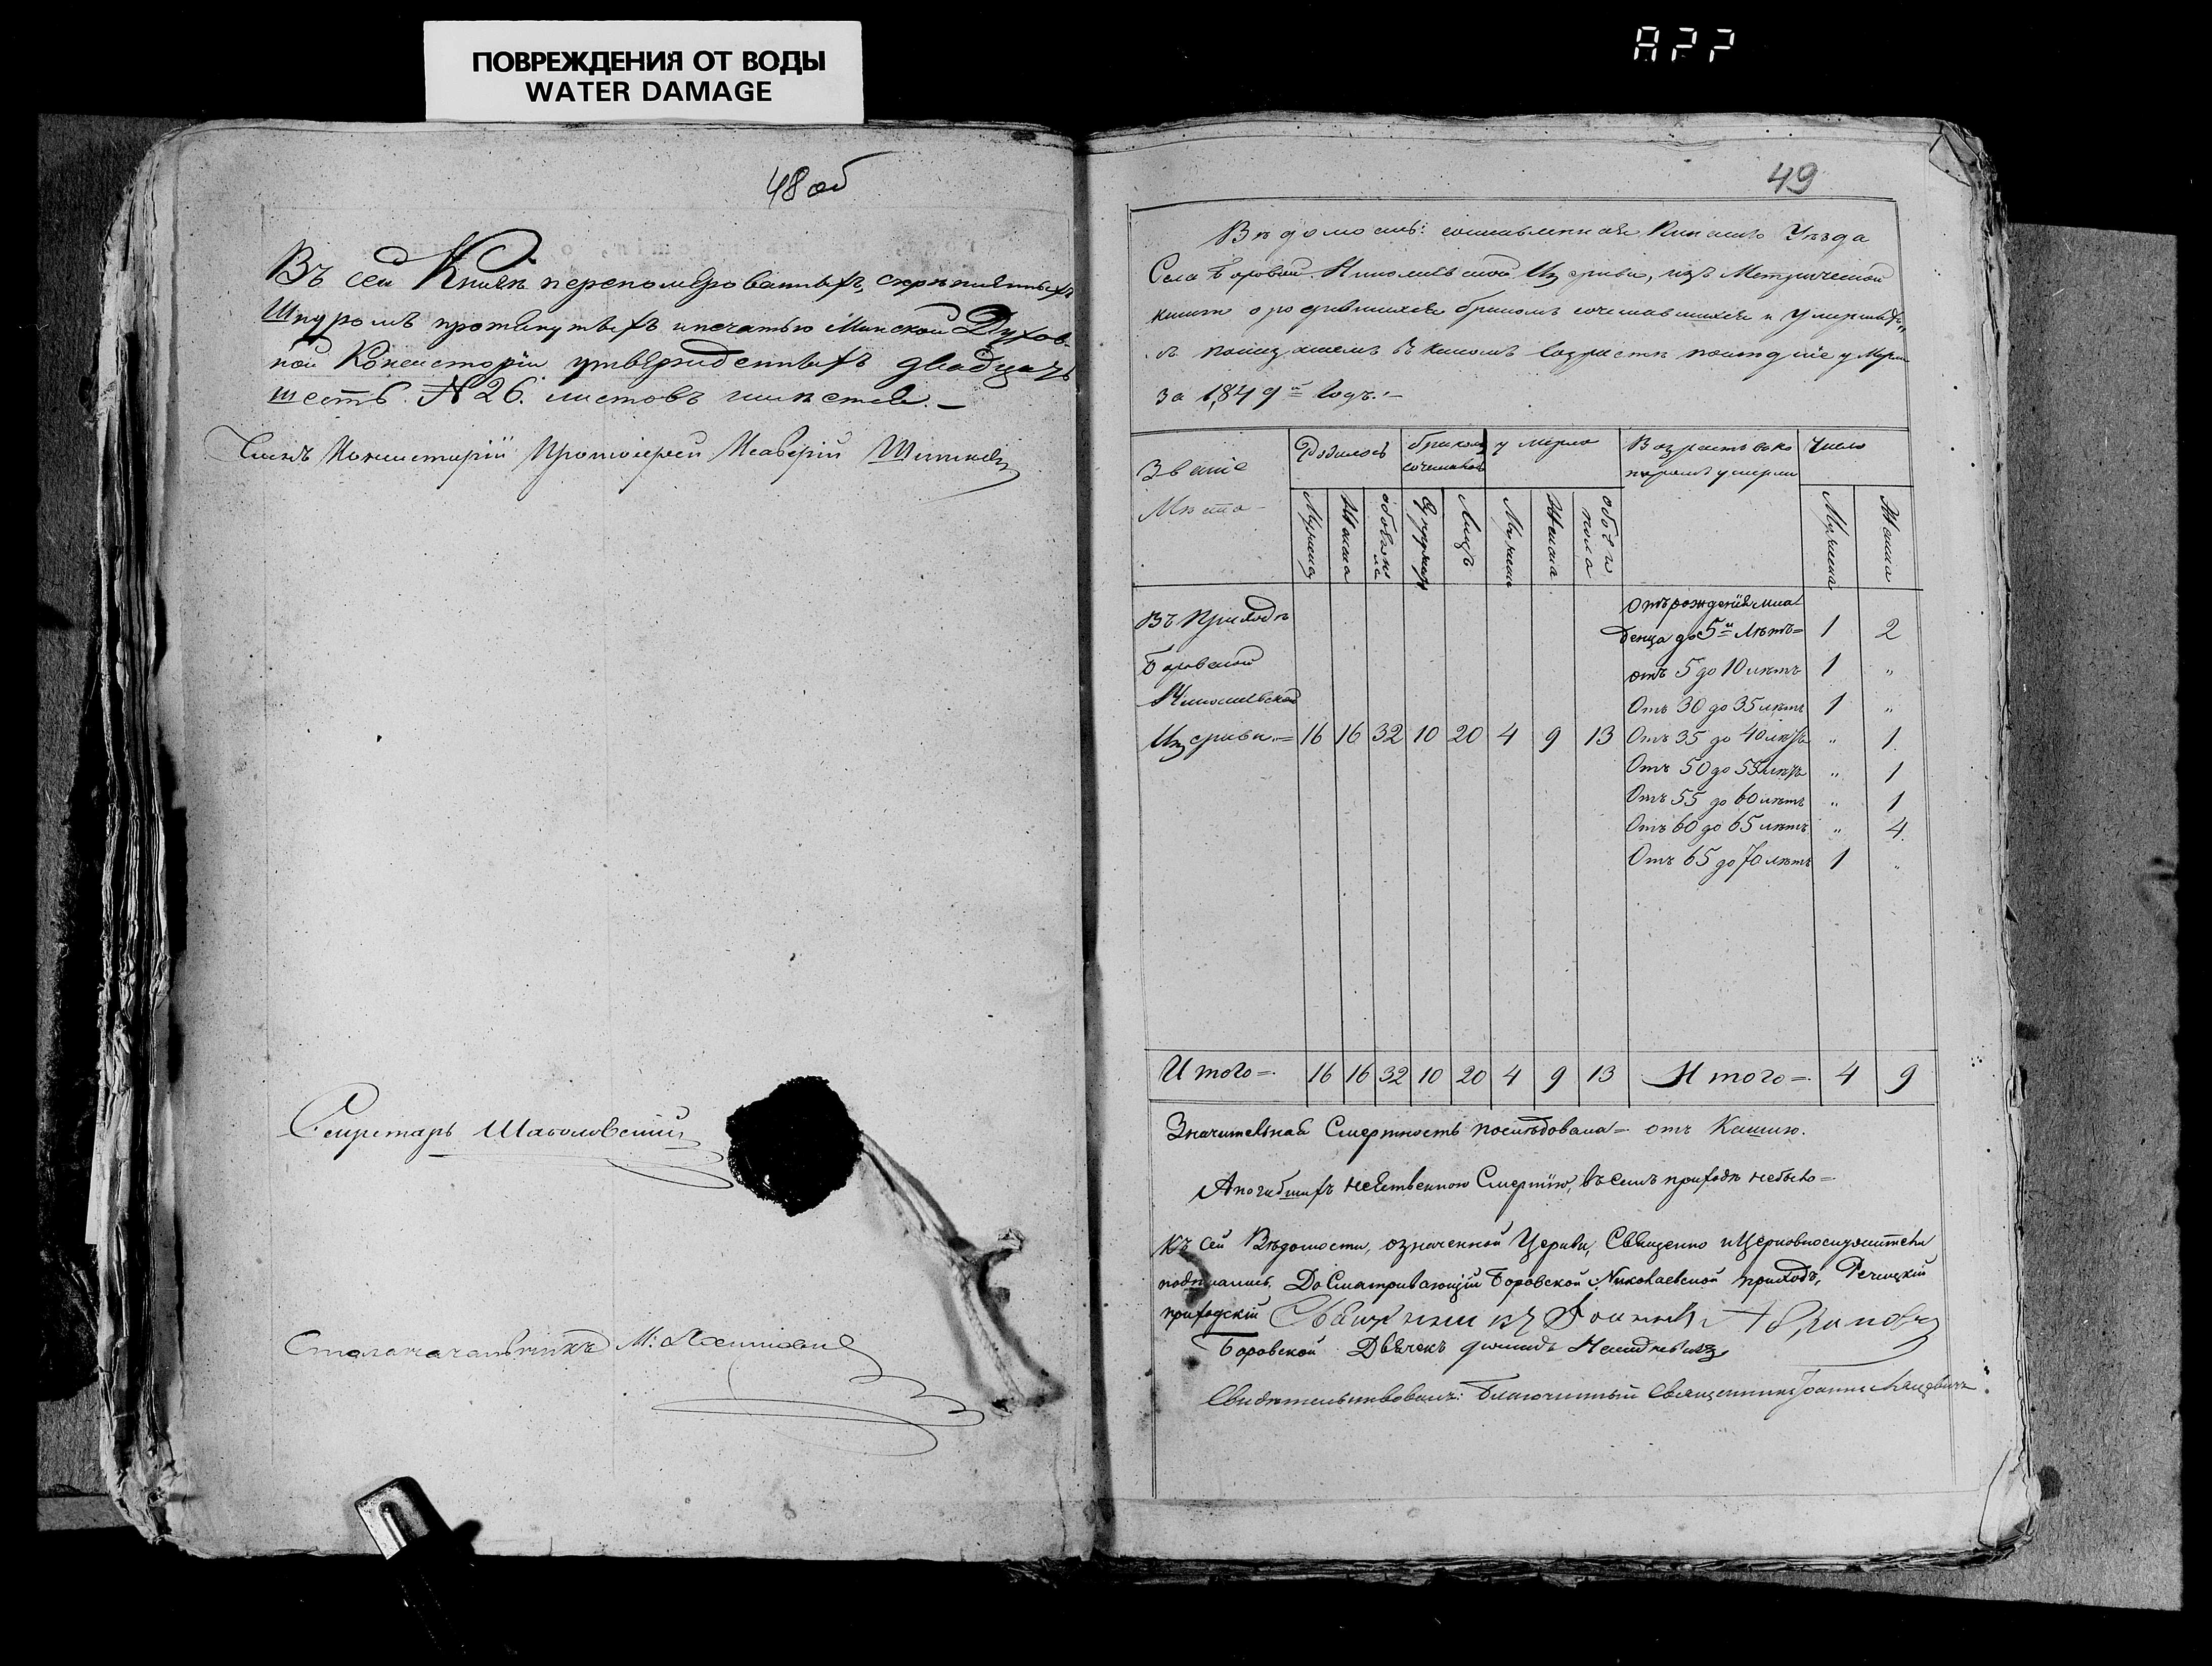 ПОВРЕЖДЕНИЯ ОТ ВОДЫ
WATER DAMAGE
A22
48 об
Въ сей Книгѣ переномерованныхъ, скрѣпленныхъ
Шнуромъ протянутыхъ и печатью Минской Духов-
ной Консисторіи утвержденныхъ двадцать
шесть № 26. листовъ имѣется.
Членъ Консисторіи Протоіерей
Секретарь
Столоначальникъ М:
49
Вѣдомость: составленная Пинскаго Уѣзда
Села Боровой Николаевской Церкви, изъ Метрической
книги о родившихся бракомъ сочетавшихся и умершихъ
съ показаніемъ въ какомъ возрастѣ
за 1849й Годъ.
Званіе
Мѣста
Родилось
бракомъ
сочеталось
умерло
Возрастъ въ ко
торомъ умерли
Число
Мужеска
Женска
обоего пола
Супружествъ
Лицъ
Мужеска
Женска
Обоего
пола
Мужеска
Женска
Въ Приходѣ
Боровской
Николаевской
Церкви.= 16 16 32 10 20 4 9 13
Отъ рожденія мла
денца до 5и лѣтъ= 1 2
отъ 5 до 10 лѣтъ 1 "
Отъ 30 до 35 лѣтъ 1 "
Отъ 35 до 40 лѣтъ " 1
Отъ 50 до 55 лѣтъ " 1
Отъ 55 до 60 лѣтъ " 1
Отъ 60 до 65 лѣтъ " 4
Отъ 65 до 70 лѣтъ 1 "
Итого=. 16 16 32 10 20 4 9 13 Итого=. 4 9
Значительная Смертность послѣдовала= отъ Кашлю.
А погибшихъ неестественною Смертію, въ семъ приходѣ небыло=
Къ сей Вѣдомости, означенной Церкви, Священно и Церковнослужители
подписались, Досматривающій Боровской Николаевской приходъ, Речицкій
приходскій Священникъ
Боровской Дьячекъ
Свидѣтельствовалъ: Благочинный Священникъ Іоаннъ